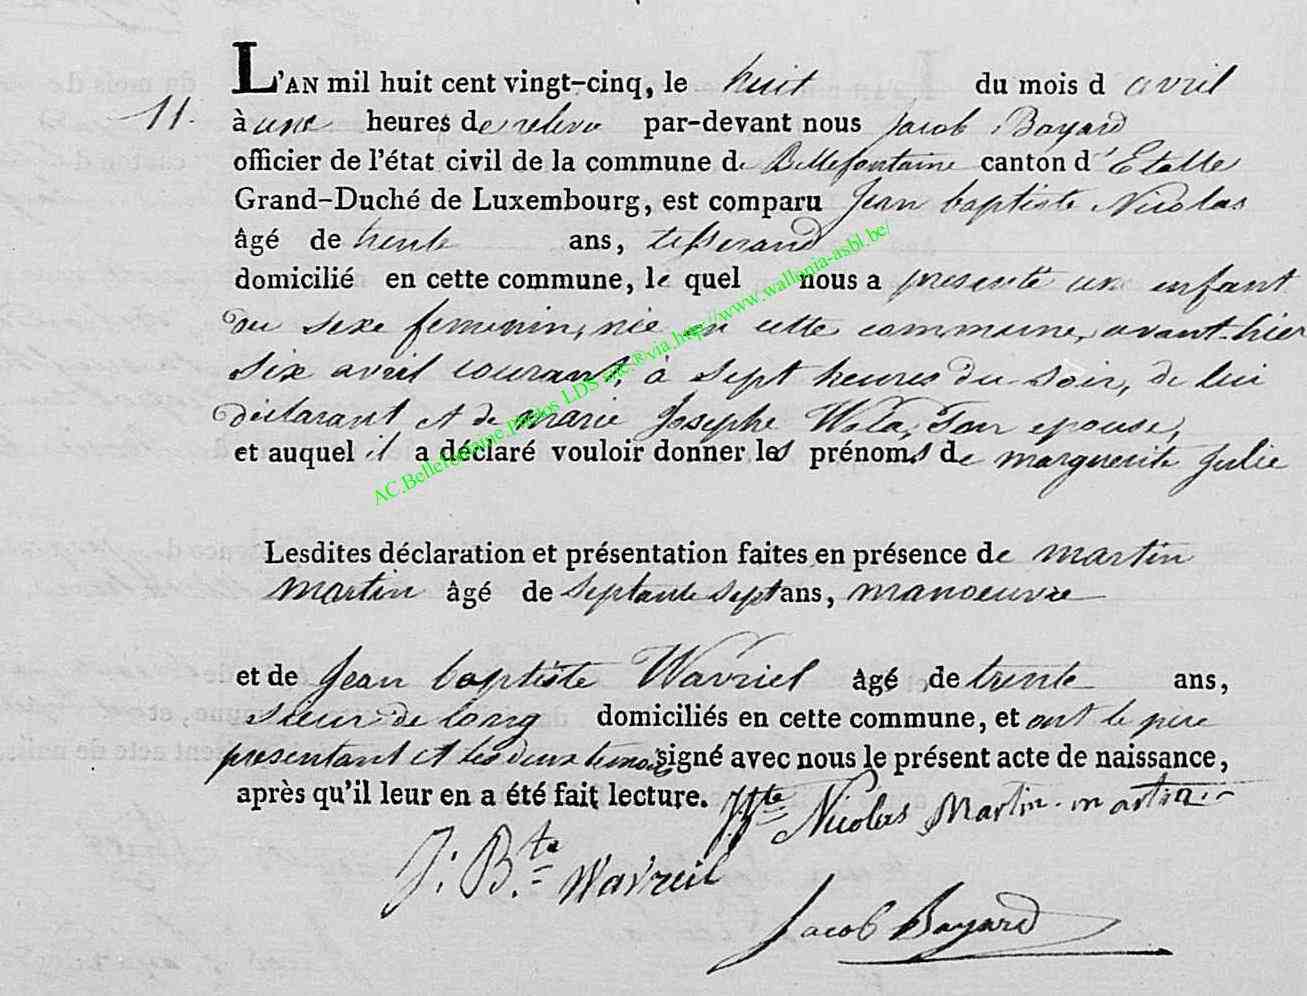 L'AN mil huit cent vingt-cinq, le huit du mois d avril
11. à une heures de relevé par-devant nous Jacob Bayard
officier de l'état civil de la commune de Bellefontaine canton d'Etalle
Grand-Duché de Luxembourg, est comparu Jean baptiste Nicolas
âgé de trente ans, tisserand
domicilié en cette commune, le quel nous a presenté un enfant
du sexe feminin, née en cette commune, avant-hier
six avril courant, à sept heures du soir, de lui
déclarant et de marie Josephe Wala, son epouse,
et auquel il a déclaré vouloir donner les prénoms de marguerite Julie
Lesdites déclaration et présentation faites en présence de martin
martin âgé de septante sept ans, manoeuvre
et de Jean baptiste Wavriel âgé de trente ans,
scieur de long domiciliés en cette commune, et ont le père
presentant et les deux temoins signé avec nous le présent acte de naissance,
après qu'il leur en a été fait lecture. J Bte Nicolas Martin martin
J. Bte Wavreil
Jacob Bayard
AC.Bellefontaine.Photos LDS via http://www.wallonia-asbl.be/